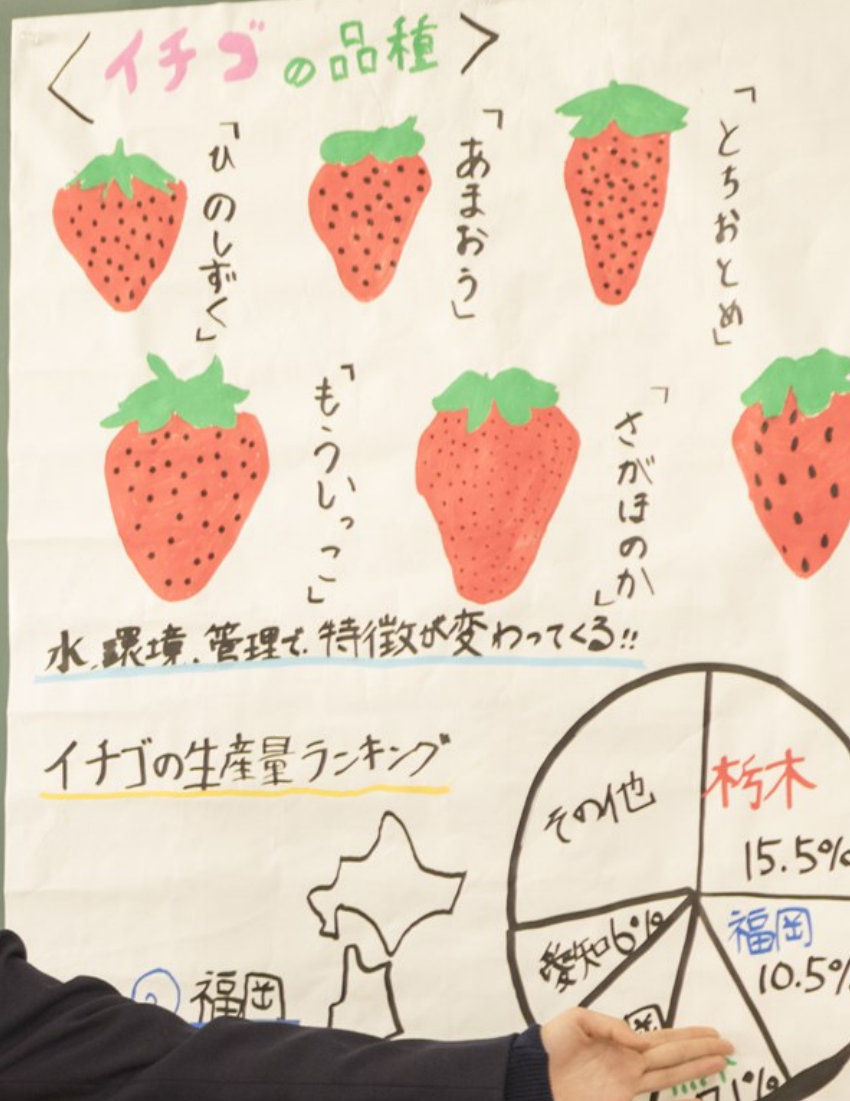 〈イチゴの品種〉
「ひのしずく」
「あまおう」
「とちおとめ」
「もういっこ」
「さがほのか」
水、環境、管理で、特徴が変わってくる!!
イチゴの生産量ランキング
その他
栃木
15.5%
福岡
10.5%
愛知6%
② 福岡
7.1%